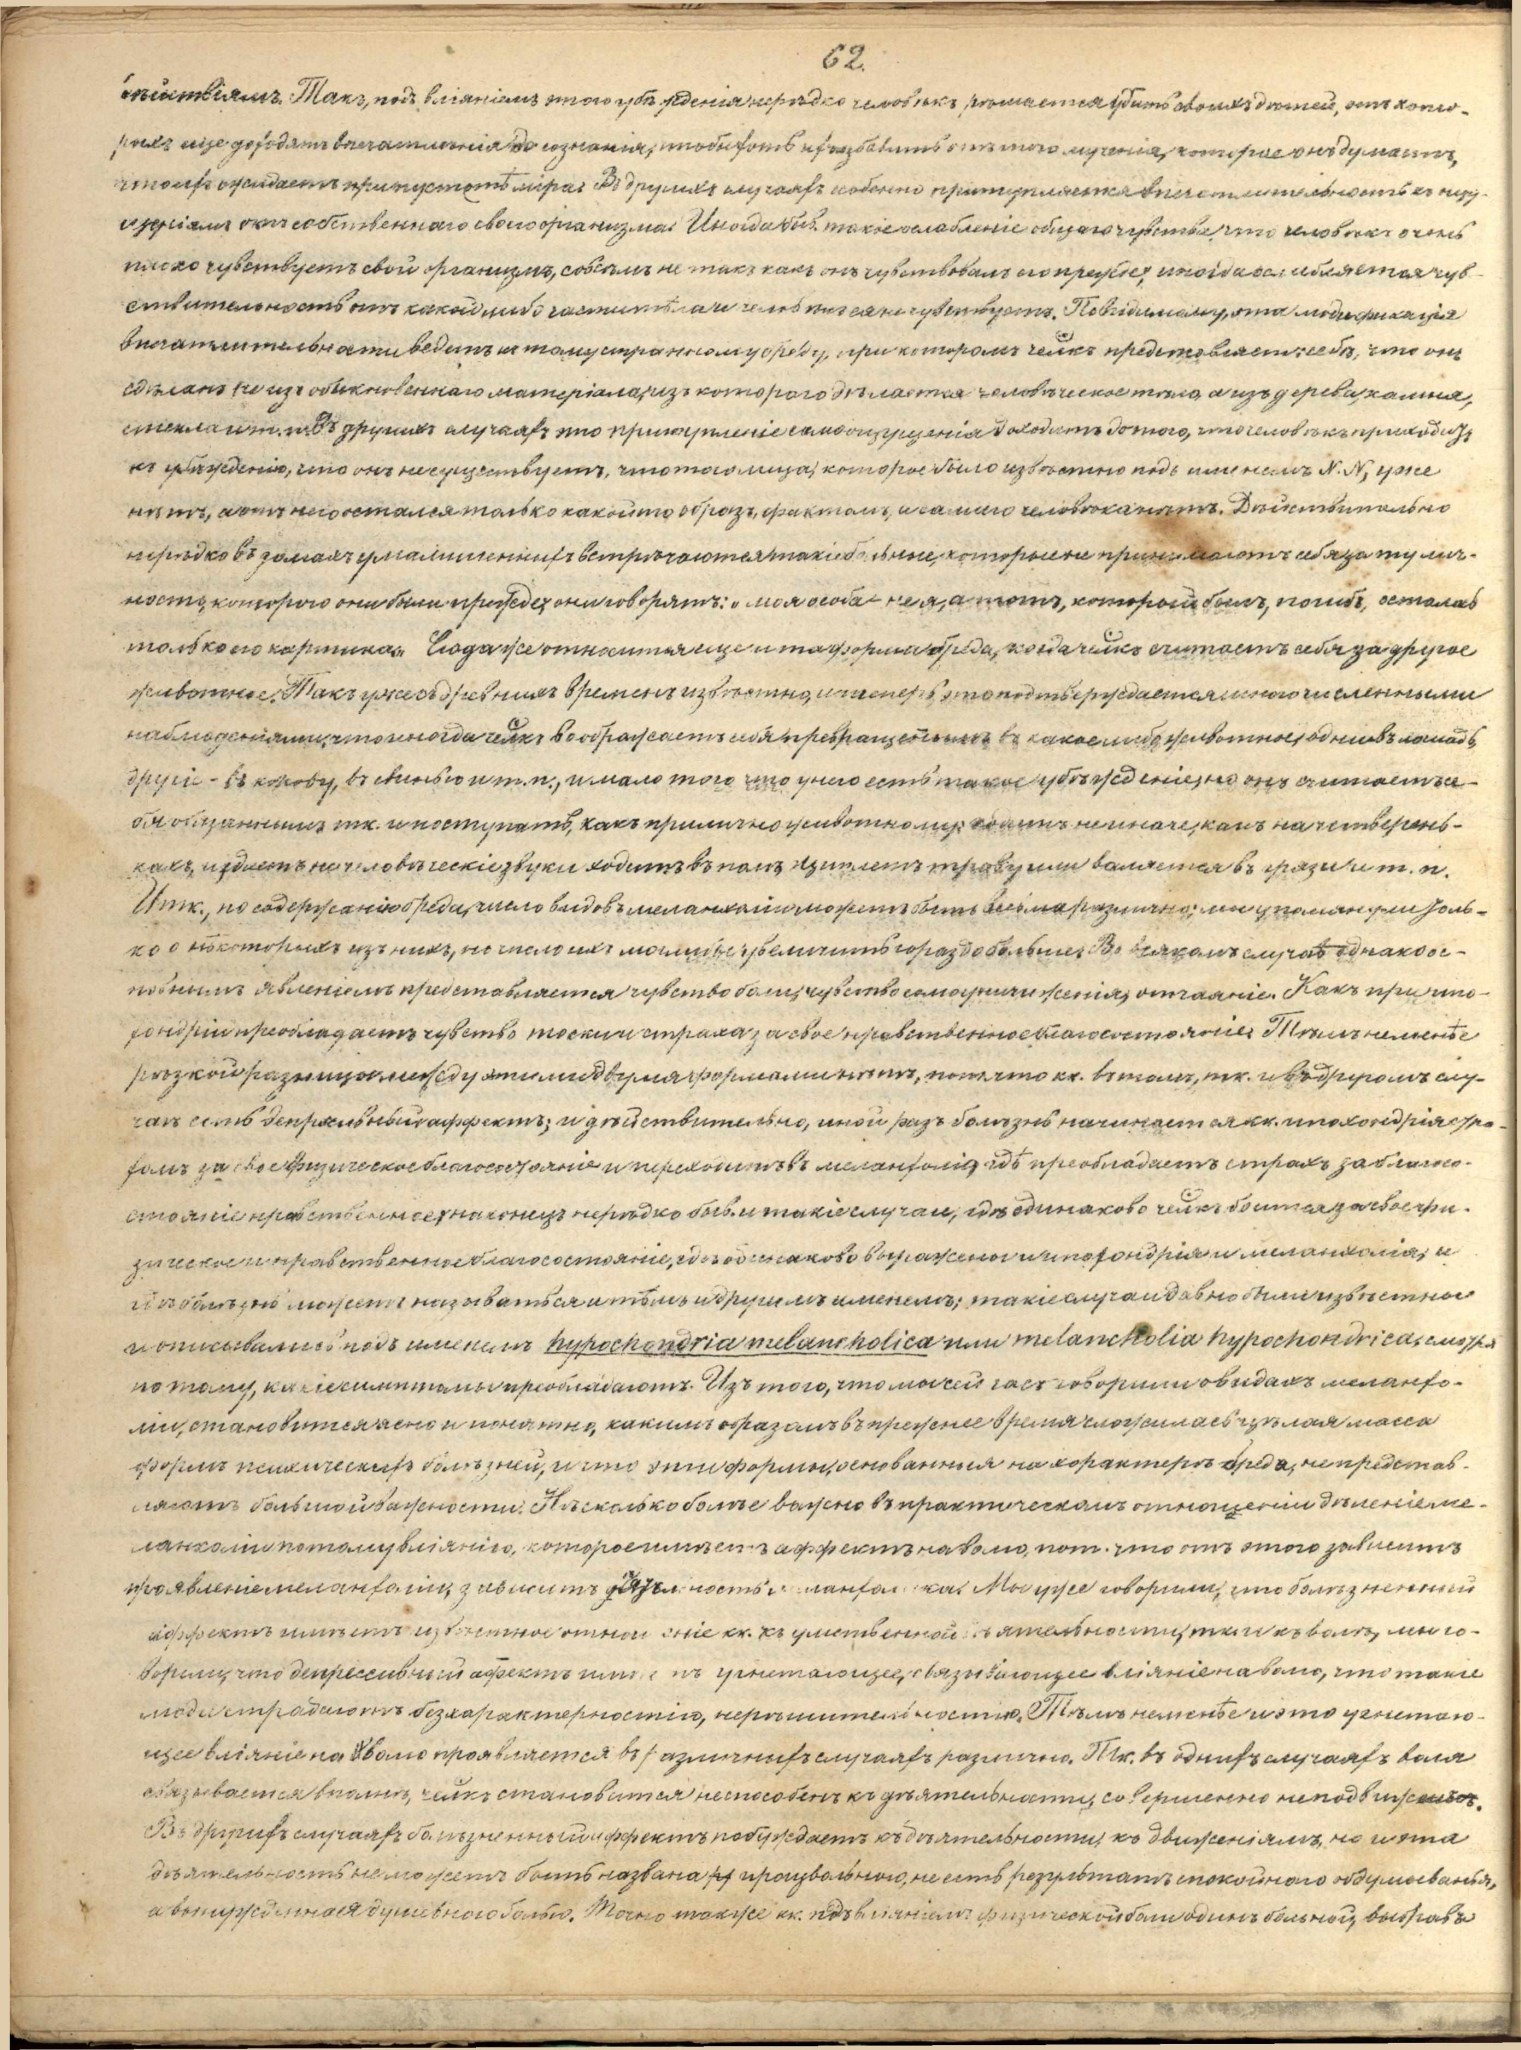 62.
дѣйствіямъ. Такъ, подъ вліяніемъ этого убѣжденія нерѣдко человѣкъ рѣшается убить своихъ дѣтей, отъ кото-
рыхъ еще доходятъ впечатлѣнія до сознанія, чтобы хоть ихъ избавить отъ того мученія, которое онъ думаетъ,
что ихъ ожидаетъ при пустотѣ міра. Въ другихъ случаяхъ особенно притупляется впечатлительность къ ощу-
щеніямъ отъ собственнаго своего организма. Иногда быв. такое ослабленіе общаго чувства, что человѣкъ очень
плохо чувствуетъ свой организмъ, совсѣмъ не такъ какъ онъ чувствовалъ его прежде; иногда ослабляется чув-
ствительность отъ какой либо части тѣла и человѣкъ ея не чувствуетъ. Повидимому, эта модификація
впечатлительности ведетъ къ тому странному бреду, при которомъ челкъ представляетъ себѣ, что онъ
сдѣланъ не изъ обыкновеннаго матеріала, изъ котораго дѣлается человѣческое тѣло, а изъ дерева, камня,
стекла и т. п. Въ другихъ случаяхъ это притупленіе самоощущенія доходитъ до того, что человѣкъ приходитъ
къ убѣжденію, что онъ не существуетъ, что того лица, которое было извѣстно подъ именемъ N. N, уже
нѣтъ, а отъ него остался только какой то образъ, фантомъ, а самого человѣка нѣтъ. Дѣйствительно
нерѣдко въ домахъ умалишенныхъ встрѣчаются такіе больные, которые не принимаютъ себя за ту лич-
ность, которого они были прежде; они говорятъ: „моя особа - не я, а тотъ, который былъ, погибъ, осталась
только его картинка". Сюда же относится еще и та форма бреда, когда челкъ считаетъ себя за другое
животное. Такъ уже съ древнихъ временъ извѣстно, и теперь это подтверждается многочисленными
наблюденіями, что иногда челкъ воображаетъ себя превращеннымъ въ какое либо животное, одни въ лошадь,
другіе - въ корову, въ свинью и т. п., и мало того что у него есть такое убѣжденіе, но онъ считаетъ се-
бя обязаннымъ тк. и поступать, какъ прилично животному: ходитъ не иначе, какъ на четверень-
кахъ, издаетъ не человѣческіе звуки, ходитъ въ поле, щиплетъ траву или валяется въ грязи и т. п.
Итк., по содержанію бреда, число видовъ меланхоліи можетъ быть весьма различно; мы упомянули толь-
ко о нѣкоторыхъ изъ нихъ, но число ихъ могли бы увеличить гораздо больше. Во всякомъ случаѣ однако ос-
новнымъ явленіемъ представляется чувство боли, чувство самоуниженія, отчаяніе. Какъ при ипо-
хондріи преобладаетъ чувство тоски и страха за свое нравственное благосостояніе. Тѣмъ не менѣе
рѣзкой разницы между этими двумя формами нѣтъ, пот. что кк. въ томъ, тк. и въ другомъ слу-
чаѣ есть депрессивный аффектъ; и дѣйствительно, иной разъ болѣзнь начинается кк. ипохондрія стра-
хомъ за свое физическое благосостояніе и переходитъ въ меланхолію, гдѣ преобладаетъ страхъ за благосо-
стояніе нравственное; наконецъ нерѣдко быв. и такіе случаи, гдѣ одинаково челкъ боится за свое фи-
зическое и нравственное благосостояніе, гдѣ одинаково выражены и ипохондрія и меланхолія, и
гдѣ болѣзнь можетъ называться и тѣмъ и другимъ именемъ; такіе случаи давно были извѣстны
и описывались подъ именемъ hypochondria melancholica или melancholia hypochondrica, смотря
по тому, какіе симптомы преобладаютъ. Изъ того, что мы сейчасъ говорили о видахъ меланхо-
ліи, становится ясно и понятно, какимъ образомъ въ прежнее время сложилась цѣлая масса
формъ психическихъ болѣзней, и что эти формы, основанныя на характерѣ бреда, не представ-
ляютъ большой важности. Нѣсколько болѣе важно въ практическомъ отношеніи дѣленіе ме-
ланхоліи по тому вліянію, которое имѣетъ аффектъ на волю, пот. что отъ этого зависитъ
проявленіе меланхоліи, зависитъ дѣятельность меланхолика. Мы уже говорили, что болѣзненный
аффектъ имѣетъ извѣстное отношеніе кк. къ умственной дѣятельности, тк. и къ волѣ, мы го-
ворили, что депрессивный афектъ имѣетъ угнетающее, связывающее вліяніе на волю, что такіе
люди страдаютъ безхарактерностію, нерѣшительностію. Тѣмъ не менѣе и это угнетаю-
щее вліяніе на волю проявляется въ различныхъ случаяхъ различно. Тк. въ однихъ случаяхъ воля
связывается вполнѣ, челкъ становится неспособенъ къ дѣятельности, совершенно неподвиженъ.
Въ другихъ случаяхъ болѣзненный аффектъ побуждаетъ къ дѣятельности, къ движеніямъ, но и эта
дѣятельность не можетъ быть названа произвольною, не есть результатъ спокойного обдумыванья,
а вынужденная душевною болью. Точно также кк. подъ вліяніемъ физической боли одинъ больной,